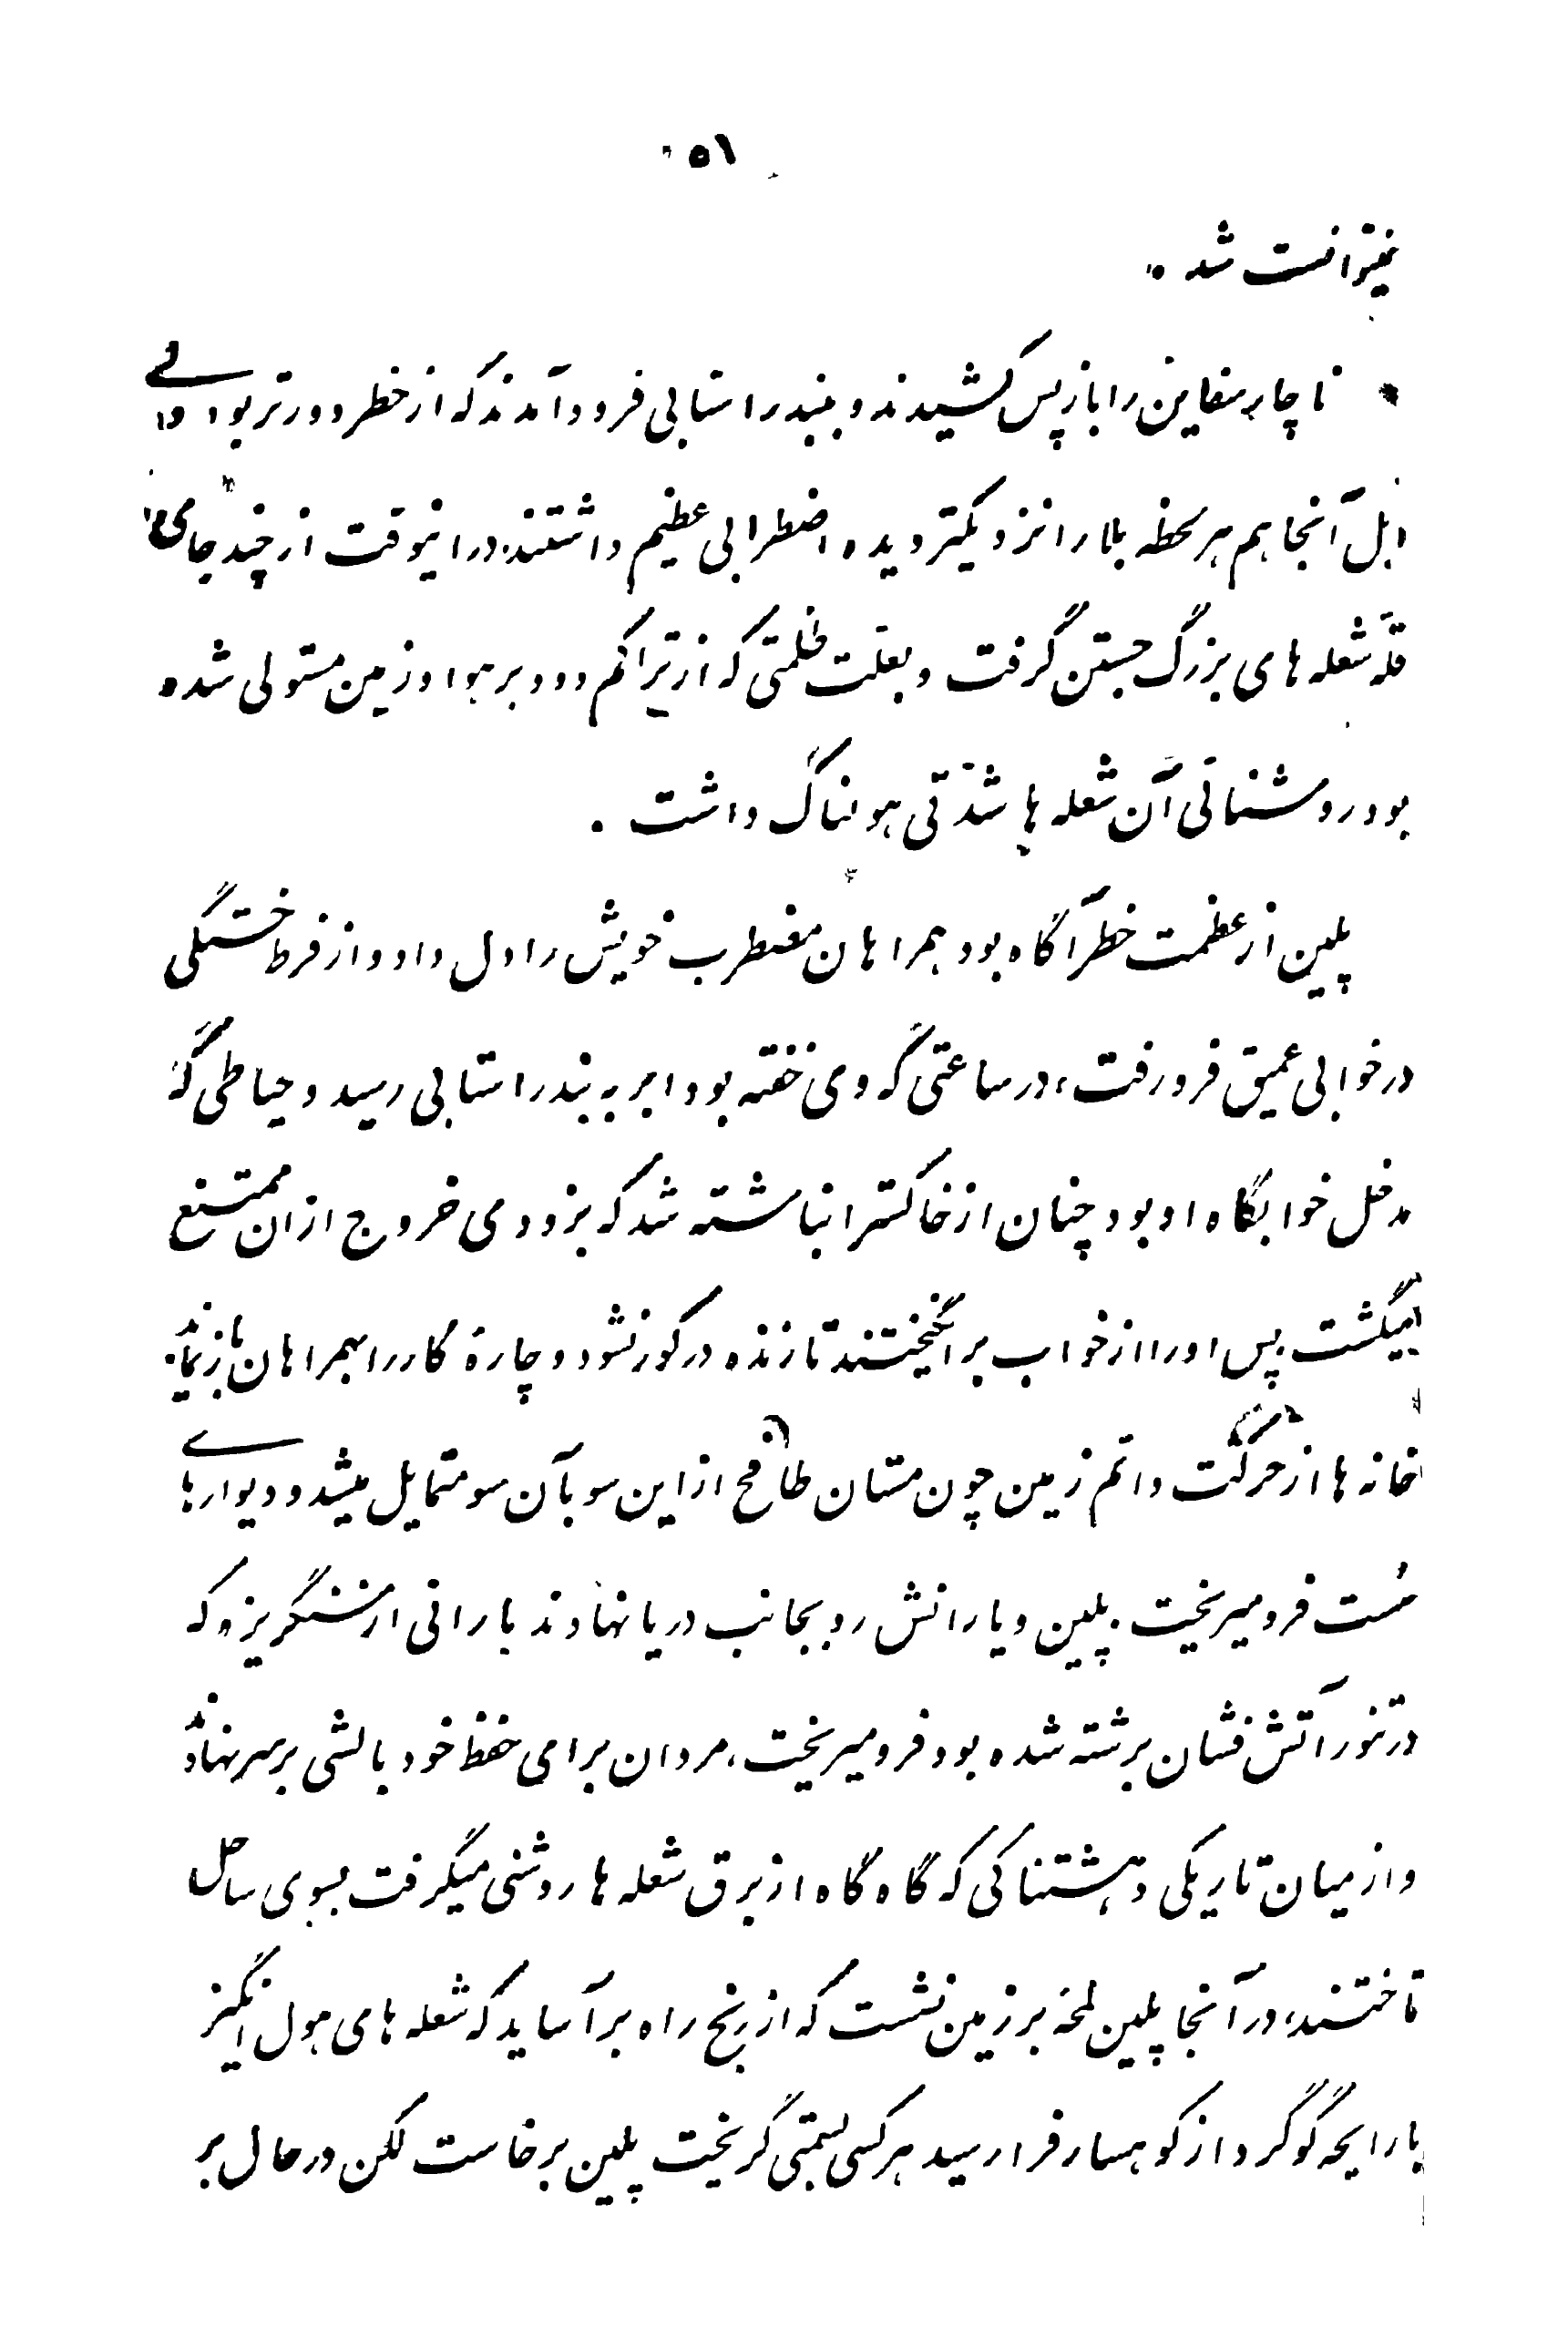 ۵۱
نمیتوانست شد .
ناچار سفاین را باز پس کشیدند و ببندر استابی فرود آمدند که از خطر دورتر بود ولی
اهل آنجا هم هر لحظه بلا را نزدیکتر دیده اضطرابی عظیم داشتند، دراینوقت از چند جای
قلّه شعله های بزرگ جستن گرفت و بعلّت ظلمتی که از تراکم دود بر هوا و زمین مستولی شده
بود روشنائی آن شعله ها شدّتی هولناک داشت .
پلین از عظمت خطر آگاه بود همراهان مضطرب خویش را دل داد و از فرط خستگی
در خوابی عمیق فرو رفت، در ساعتی که وی خفته بود ابر به بندر استابی رسید و حیاطی که
مدخل خوابگاه او بود چنان از خاکستر انباشته شد که بزودی خروج از ان ممتنع
میگشت پس او را از خواب برانگیختند تا زنده در گور نشود و چارهٔ کار را بهمراهان باز نماید.
خانه ها از حرکت دائم زمین چون مستان طافح از این سو بآن سو متمایل میشد و دیوارهای
سُست فرو میریخت . پلین و یارانش رو بجانب دریا نهادند بارانی از سنگریزه که
در تنور آتش فشان برشته شده بود فرو میریخت، مردان برای حفظ خود بالشی بر سر نهاده
و از میان تاریکی دهشتناکی که گاه گاه از برق شعله ها روشنی میگرفت بسوی ساحل
تاختند، در آنجا پلین لمحهٔ بر زمین نشست که از رنج راه برآساید که شعله های هول انگیز
با رایحه گوگرد از کوهسار فرا رسید هر کسی بسمتی گریخت پلین برخاست لکن در حال بر